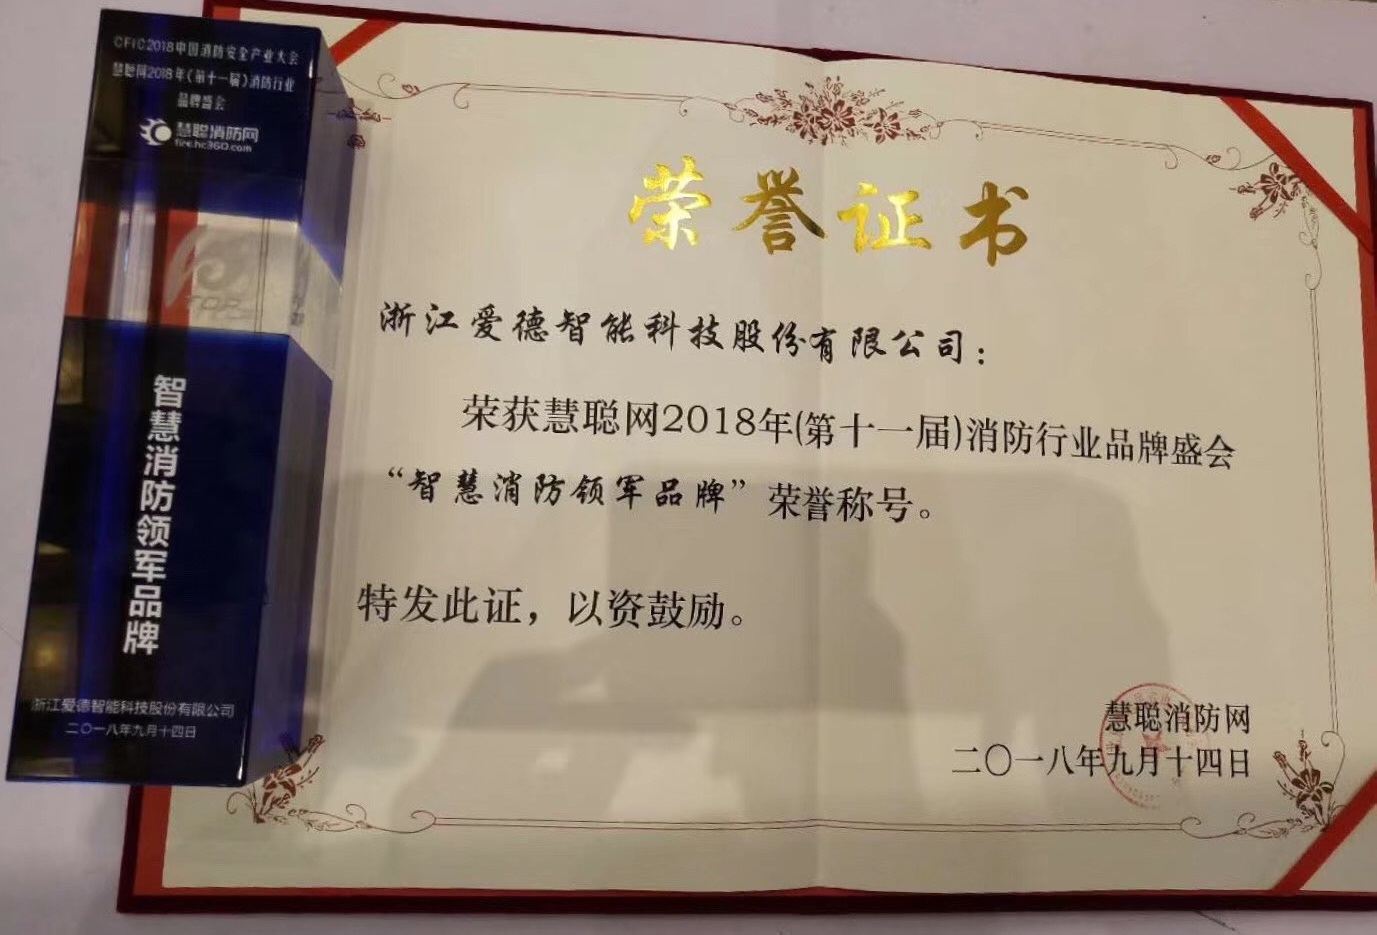 CFIC2018中国消防安全产业大会
慧聪网2018年(第十一届)消防行业
品牌盛会
慧聪消防网
fire.hc360.com
TOP
智慧消防领军品牌
浙江爱德智能科技股份有限公司
二〇一八年九月十四日
荣誉证书
浙江爱德智能科技股份有限公司:
荣获慧聪网2018年(第十一届)消防行业品牌盛会
“智慧消防领军品牌”荣誉称号。
特发此证，以资鼓励。
慧聪消防网
二〇一八年九月十四日